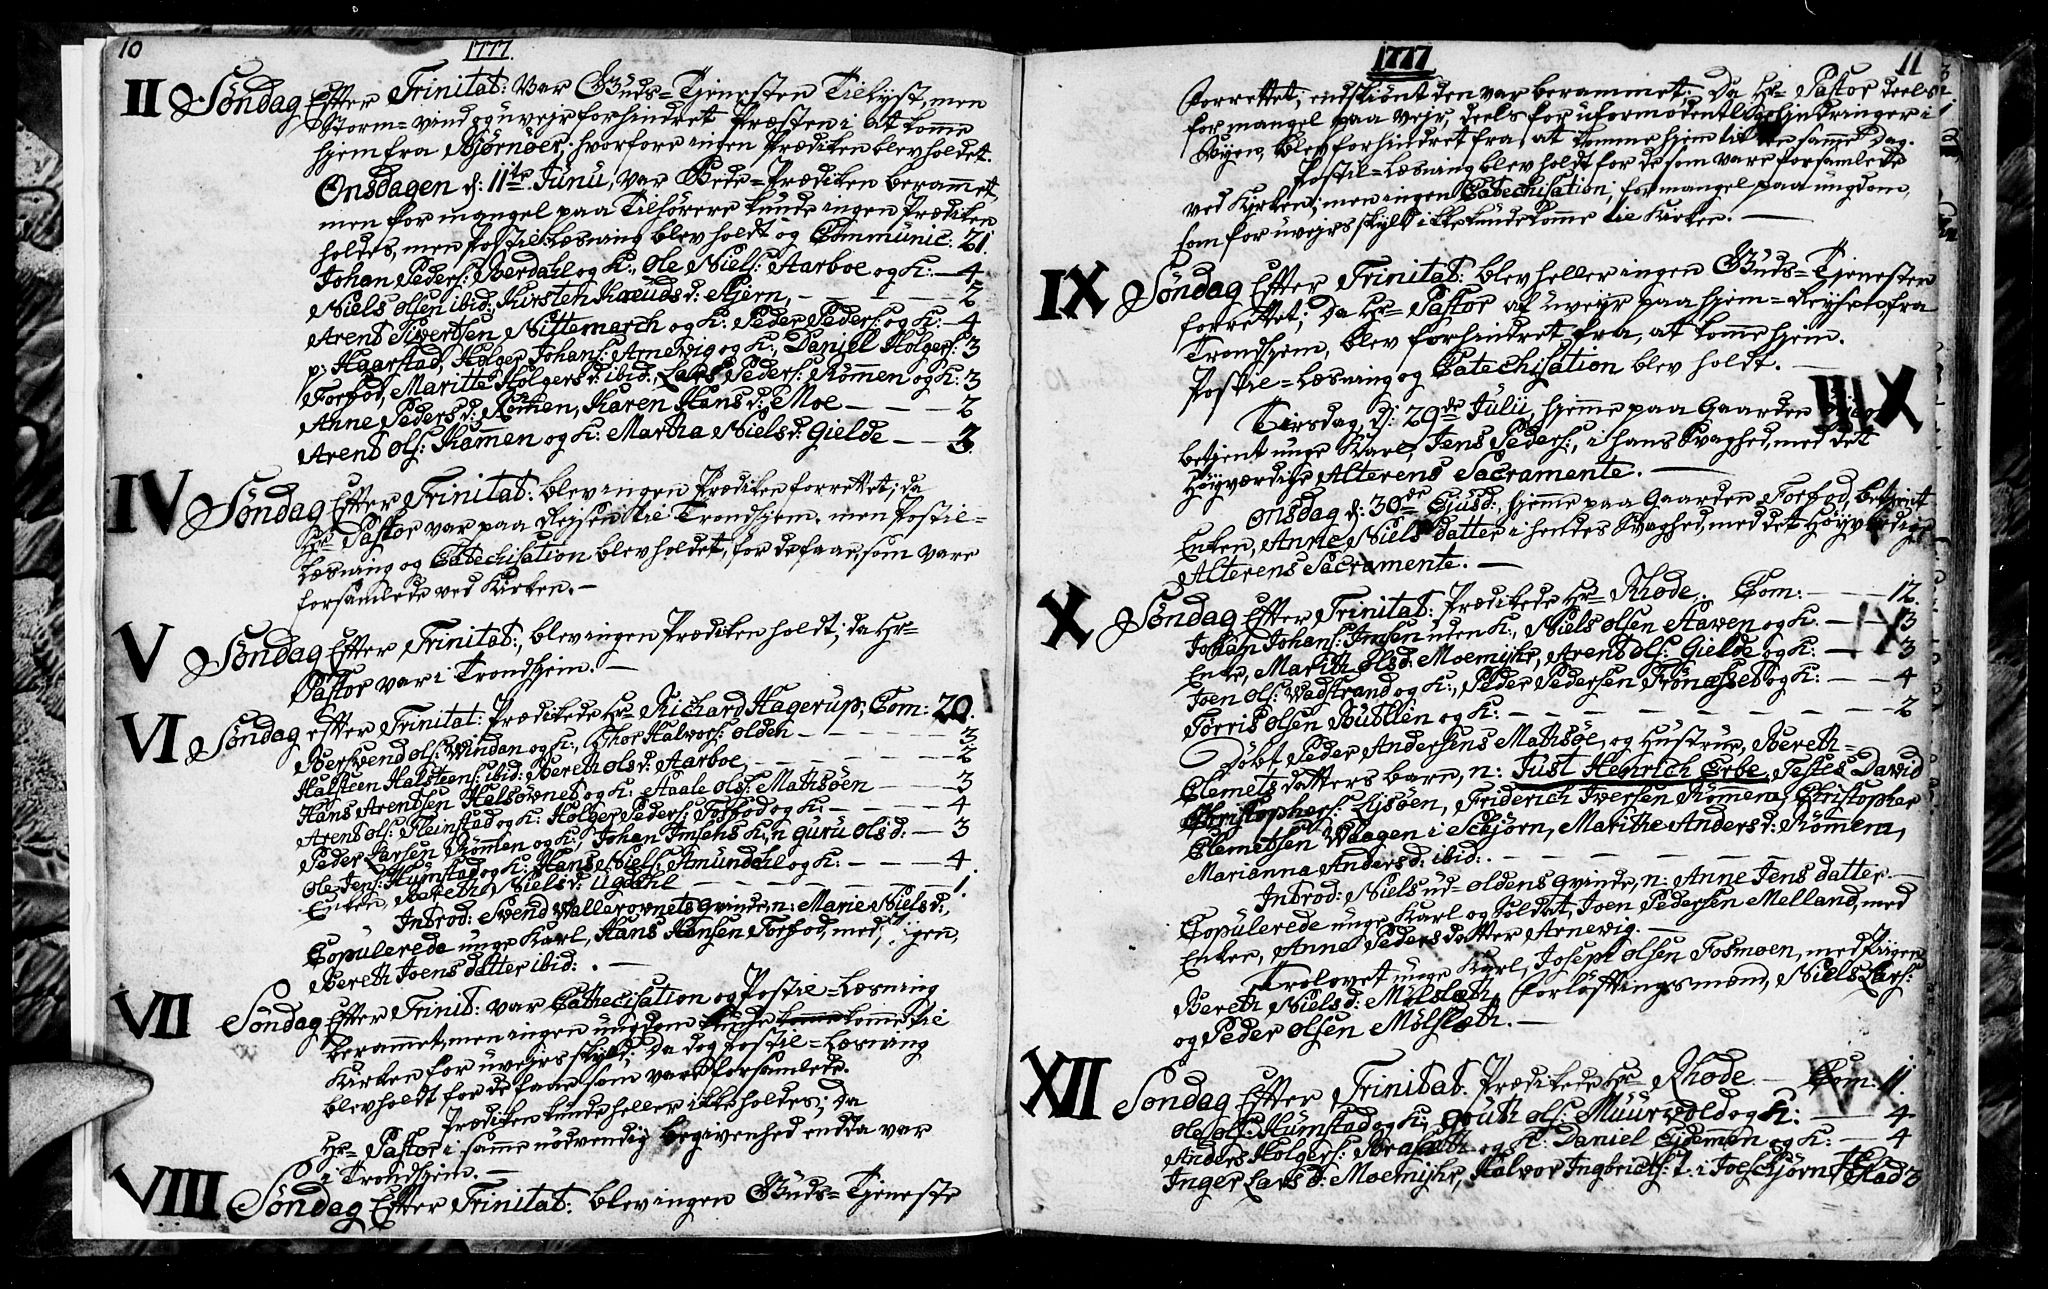 10
1777.
II Søndag Efter Trinitat: var Guds=Tjenesten Tillyst, men
Storm=vind og uvejr forhindret Præsten i at komme
hjem fra Bjørnøer, hvorfore ingen Prædiken blev holdet.
Onsdagen d: 11te Junii, var Bede=Prædiken berammet,
men for mangel paa Tilhørere kunde ingen Prædiken
holdes, men Postil=Læsning blev holdt og Communic: 21.
Johan Peders: Berdahl og K:, Ole Niels: Aarboe og K: — 4
Niels Olsen ibid: Kirsten Knudsd: Stjern, — — — — 2
Arent Sivertsen Nittemarch og K: Peder Peders: og K: — 4
p: Haarstad, Holger Johans: Arnevig og K:, Daniel Holgers: 3
Forfod, Maritte Holgersd: ibid:, Lars Peders: Rømmen og K: 3
Anne Pedersd: Rømen, Karen Hansd: Moe — — — 2
Arent Ols: Kammen og K: Martha Nielsd: Gielde — — 3.
IV Søndag Efter Trinitat: blev ingen Prædiken forrettet; da
Hr= Pastor var paa Rejsen til Trondhjem. men Postil=
Læsning og Catechisation blev holdet, for de faae, som vare
forsamlede ved Kirken. —
V Søndag Efter Trinitat:, blev ingen Prædiken holdt; da Hr=
Pastor var i Trondhjem. —
VI Søndag efter Trinitat: Prædikede Hr= Richard Hagerup; Com: 20.
Berswend Ols: Windan og K:, Thor Halvors: Olden — — — 3
Halsteen Halsteens: ibid: Bereth Olsd: Aarboe, — — — — 2
Hans Arentsen Halsøvnet og K: Staale Ols: Mathsøen — — 3
Arent Ols: Fleinstad og K: Holger Peders: Forfod og K: — — 4
Peder Larsen Rømmen og K:, Johan Imsens K:, n Guru Olsd: — 3
Ole Jens: Humstad og K: Hans Niels: Amundahl og K: — — — 4.
Enken, Bereth Nielsd: Ugdahl — — — — — 1.
Introd: Svend Wallersovnets Qvinde, n: Marie Nielsd:,
Copulerede unge Karl, Hans Hansen Forfod, med, Pigen,
Bereth Joensdatter ibid: . —
VII Søndag Efter Trinit: var Catechisation og Postil=Læsning
berammet, men ingen ungdom kunde komme til
Kirken for uvejrs skyld; Da dog Postil=Læsning
blev holdt for de faae som vare forsamlede.
Prædiken kunde heller ikke holdes; da
Hr= Pastor i samme nødvendig begivenhed endda var
i Trondhjem. —
VIII Søndag Efter Trinitat: blev ingen Guds=Tjeneste
1777
11
forrettet; endskiønt den var berammet: Da Hr= Pastor deels
for mangel paa vejr deels for uformodentlige hindringer i
Byen, blev forhindret fra at komme hjem til samme Dag.
Postil=Læsning blev holdt for de som vare forsamlede
ved Kirken; men ingen Catechisation, for mangel paa ungdom,
som for uvejrs skyld ikke kunde komme til Kirken. —
IX Søndag Efter Trinitat: blev heller ingen Guds=Tjenesten
forrettet; Da Hr= Pastor af uvejr paa hjem=Reysen fra
Trondhjem, blev forhindret fra, at komme hjem.
Postil=Læsning og Catechisation blev holdt. —
Tirsdag, d: 29de Julii, hjemme paa Gaarden
betjent unge Karl, Jens Peders:, i hans svaghed, med det
Høyværdige Alterens Sacramente. —
Onsdag d: 30de Ejusd:, hjemme paa Gaarden Forfod, betjent
Enken, Anne Nielsdatter i hendes svaghed, med det Høyværdige
Alterens Sacramente. —
X Søndag Efter Trinitat: Prædikede Hr= Rhode. Com: — — 12.
Johan Johans: Imsen uden K:, Niels Olsen Staven og K. — — 3
Enke, Marith Olsd: Moemyhr, Arent Ols: Gielde og K: — 3
Joen Ols: Wadstrand og K:, Peder Pedersen Frønesset og K: — — 4
Torris Olsen Butlien og K: — — — — — — — 2
Døbt Peder Andersens Mathsøe, og Hustrue, Bereth
Clemetsdatters barn, n: Just Henrich Erbe, Testes David
Christophers: Lysøen, Friderich Iversen Rømmen, Christopher
Clemetsen Waagen i Schjørn, Marithe Andersd: Rømmen,
Marianna Andersd: ibid: . — — — — — —
Introd: Niels ud=Oldens Qvinde, n: Anne Jens datter. —
Copulerede unge Karl og Soldat, Joen Pedersen Melland, med
Enken, Anne Pedersdatter Arnevig. —
Trolovet unge Karl, Joseph Olsen Fosmoen, med Pigen,
Bereth Nielsd: Mølslæth, Forløftningsmænd, Niels Lars:
og Peder Olsen Mølslæth. —
XII Søndag Efter Trinitat. Prædikede Hr= Rhode. — Com: 11.
Ole Ols: Humstad og K:, Gouth Ols: Muurvold og K: — 4
Anders Holgers: og K: Daniel Eidemen og K: — 4
Inger Larsd: Moemyhr, Halvor Ingbrichts: L: i Joeschjørn 3